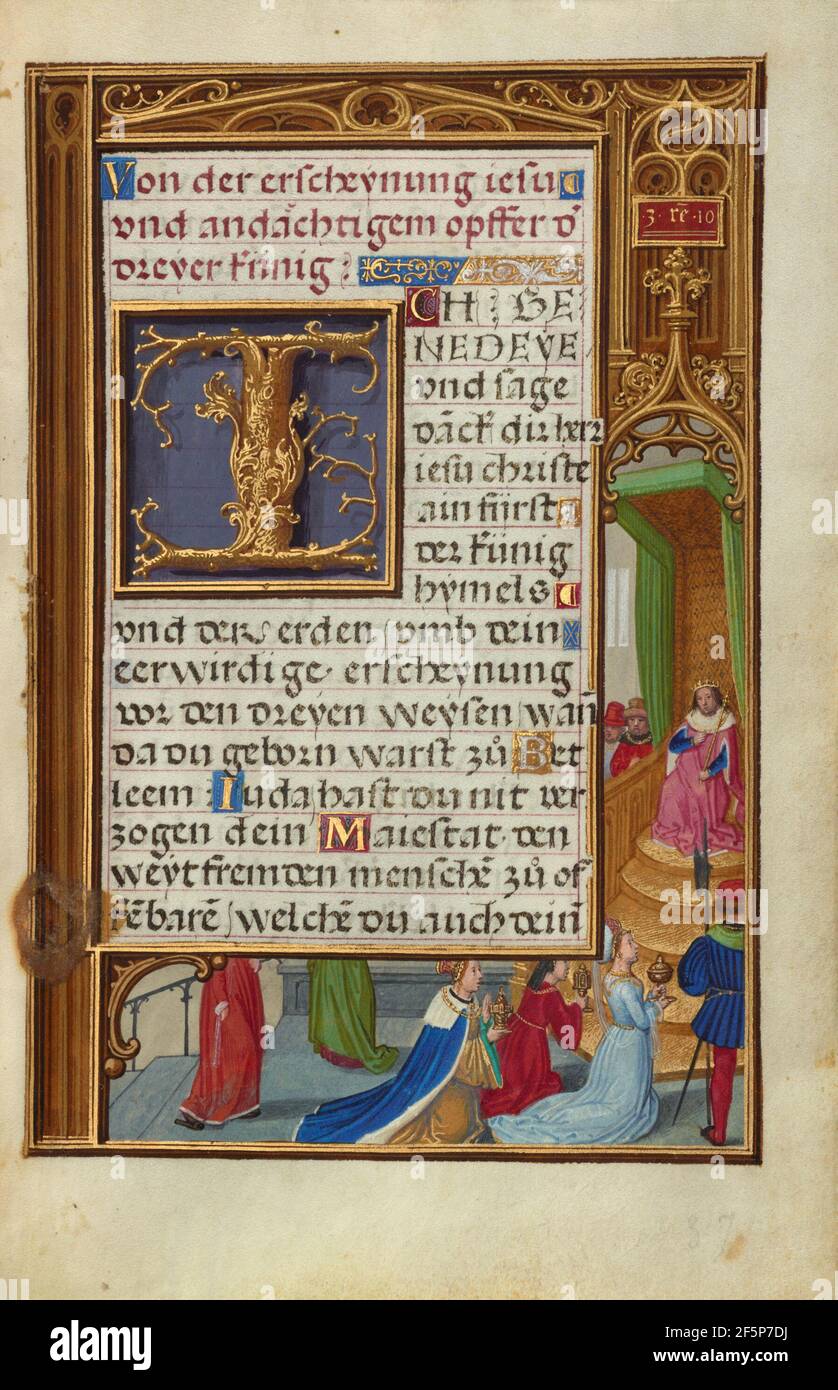 Von der erscheynung iesu
vnd andächtigem opffer d'
dreyer künig:
·3·rē·10
ICH : BE
NEDEYE
vnd sage
dāck dir herr
iesu christe
ain fürst
der künig
hymels
vnd ders erden / vmb dein
eerwirdige erscheynung
vor den dreyen weysen / wan̄
da du geborn warst zů Bet
leem Iuda hast du nit ver
zogen dein Maiestat den
weyt fremden menschē zů of
fēbarē / welchē du auch dein̄
37
alamy
Image ID: 2F5P7DJ
www.alamy.com